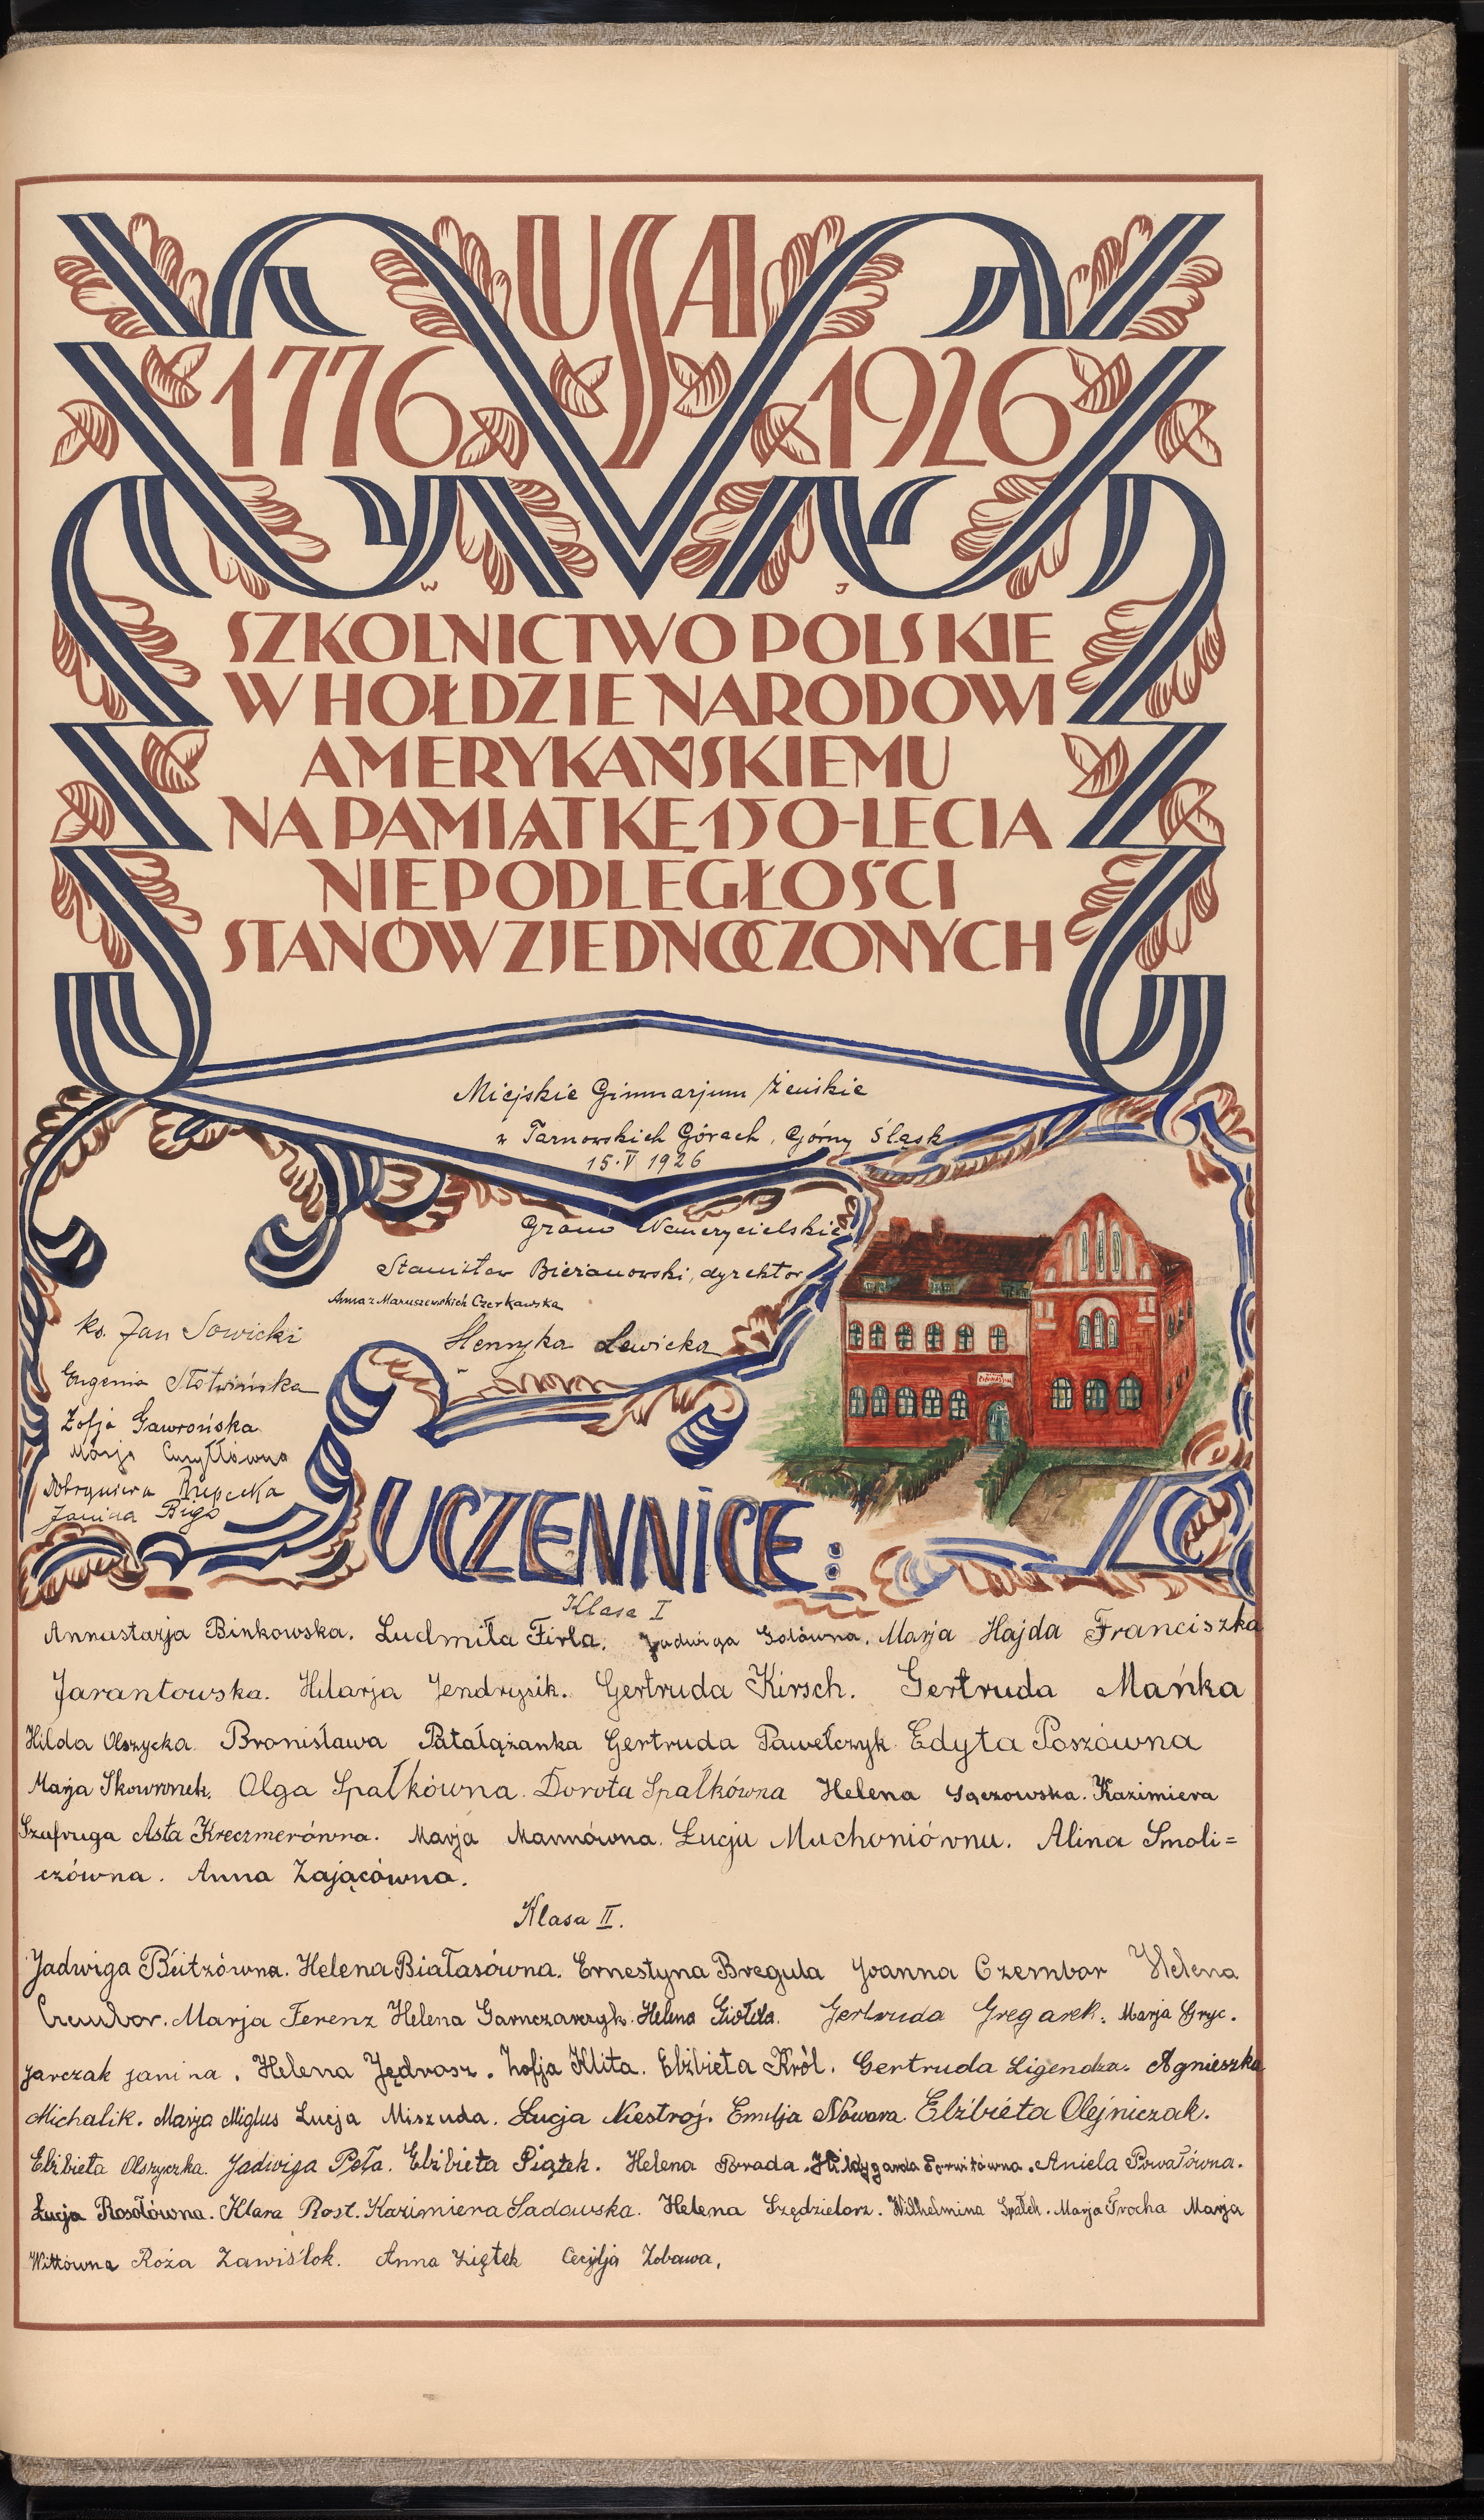 USA
1776 1926
W J
SZKOLNICTWO POLSKIE
W HOŁDZIE NARODOWI
AMERYKAŃSKIEMU
NA PAMIĄTKĘ 150-LECIA
NIEPODLEGŁOŚCI
STANÓW ZJEDNOCZONYCH
Miejskie Gimnazjum Żeńskie
w Tarnowskich Górach, Górny Śląsk
15·V 1926
Grono Nauczycielskie
Stanisław Bieranowski, dyrektor
Anna z Maruszewskich Czerkawska
Henryka Lewicka
ks. Jan Sowicki
Eugenia Słotwińska
Zofja Gawrońska
Marja
Rzepecka
Janina Biga
UCZENNICE:
Klasa I
Annastazja Binkowska. Ludmiła Firla. Jadwiga Golówna. Marja Hajda Franciszka
Jarantowska. Hilarja Jendrysik. Gertruda Kirsch. Gertruda Mańka
Hilda Olszycka. Bronisława Patałążanka Gertruda Pawełczyk Edyta Poszówna
Marja Skowronek. Olga Spałkówna. Dorota Spałkówna Helena Sączowska. Kazimiera
Szafruga Asta Kreczmerówna. Marja Mannówna. Łucja Machoniówna. Alina Smoli=
czówna. Anna Zającówna.
Klasa II.
Jadwiga Beitzówna. Helena Białasówna. Ernestyna Bregula Joanna Czembor Helena
Czembor. Marja Ferenz Helena Garnczarczyk. Helena Giołda. Gertruda Gregarek. Marja Gryc.
Jarczak Janina. Helena Jędrosz. Zofja Klita. Elżbieta Król. Gertruda Ligendza. Agnieszka
Michalik. Marja Miglus Łucja Miszuda. Łucja Niestrój. Emilja Nowara. Elżbieta Olejniczak.
Elżbieta Olszyczka. Jadwiga Peła. Elżbieta Piątek. Helena Porada. Hildygarda Porwitówna. Aniela Powałówna.
Łucja Rosołówna. Klara Rost. Kazimiera Sadowska. Helena Szędzielorz. Wilhelmina Spałek. Marja Trocha Marja
Wittówna Róża Zawiślok. Anna Ziętek Cecylja Zobawa.